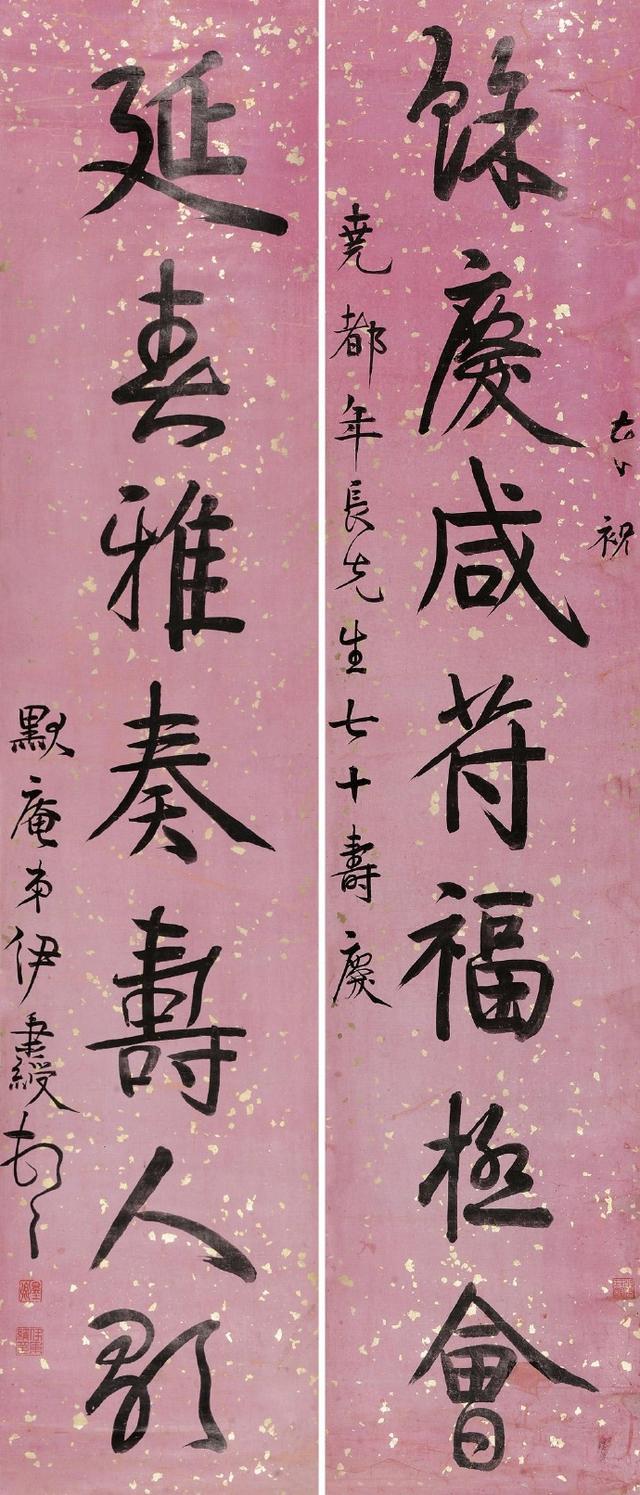 祝
餘慶咸符福極會
堯都年長先生七十壽慶
延春雅奏壽人歌
默庵弟伊秉綬